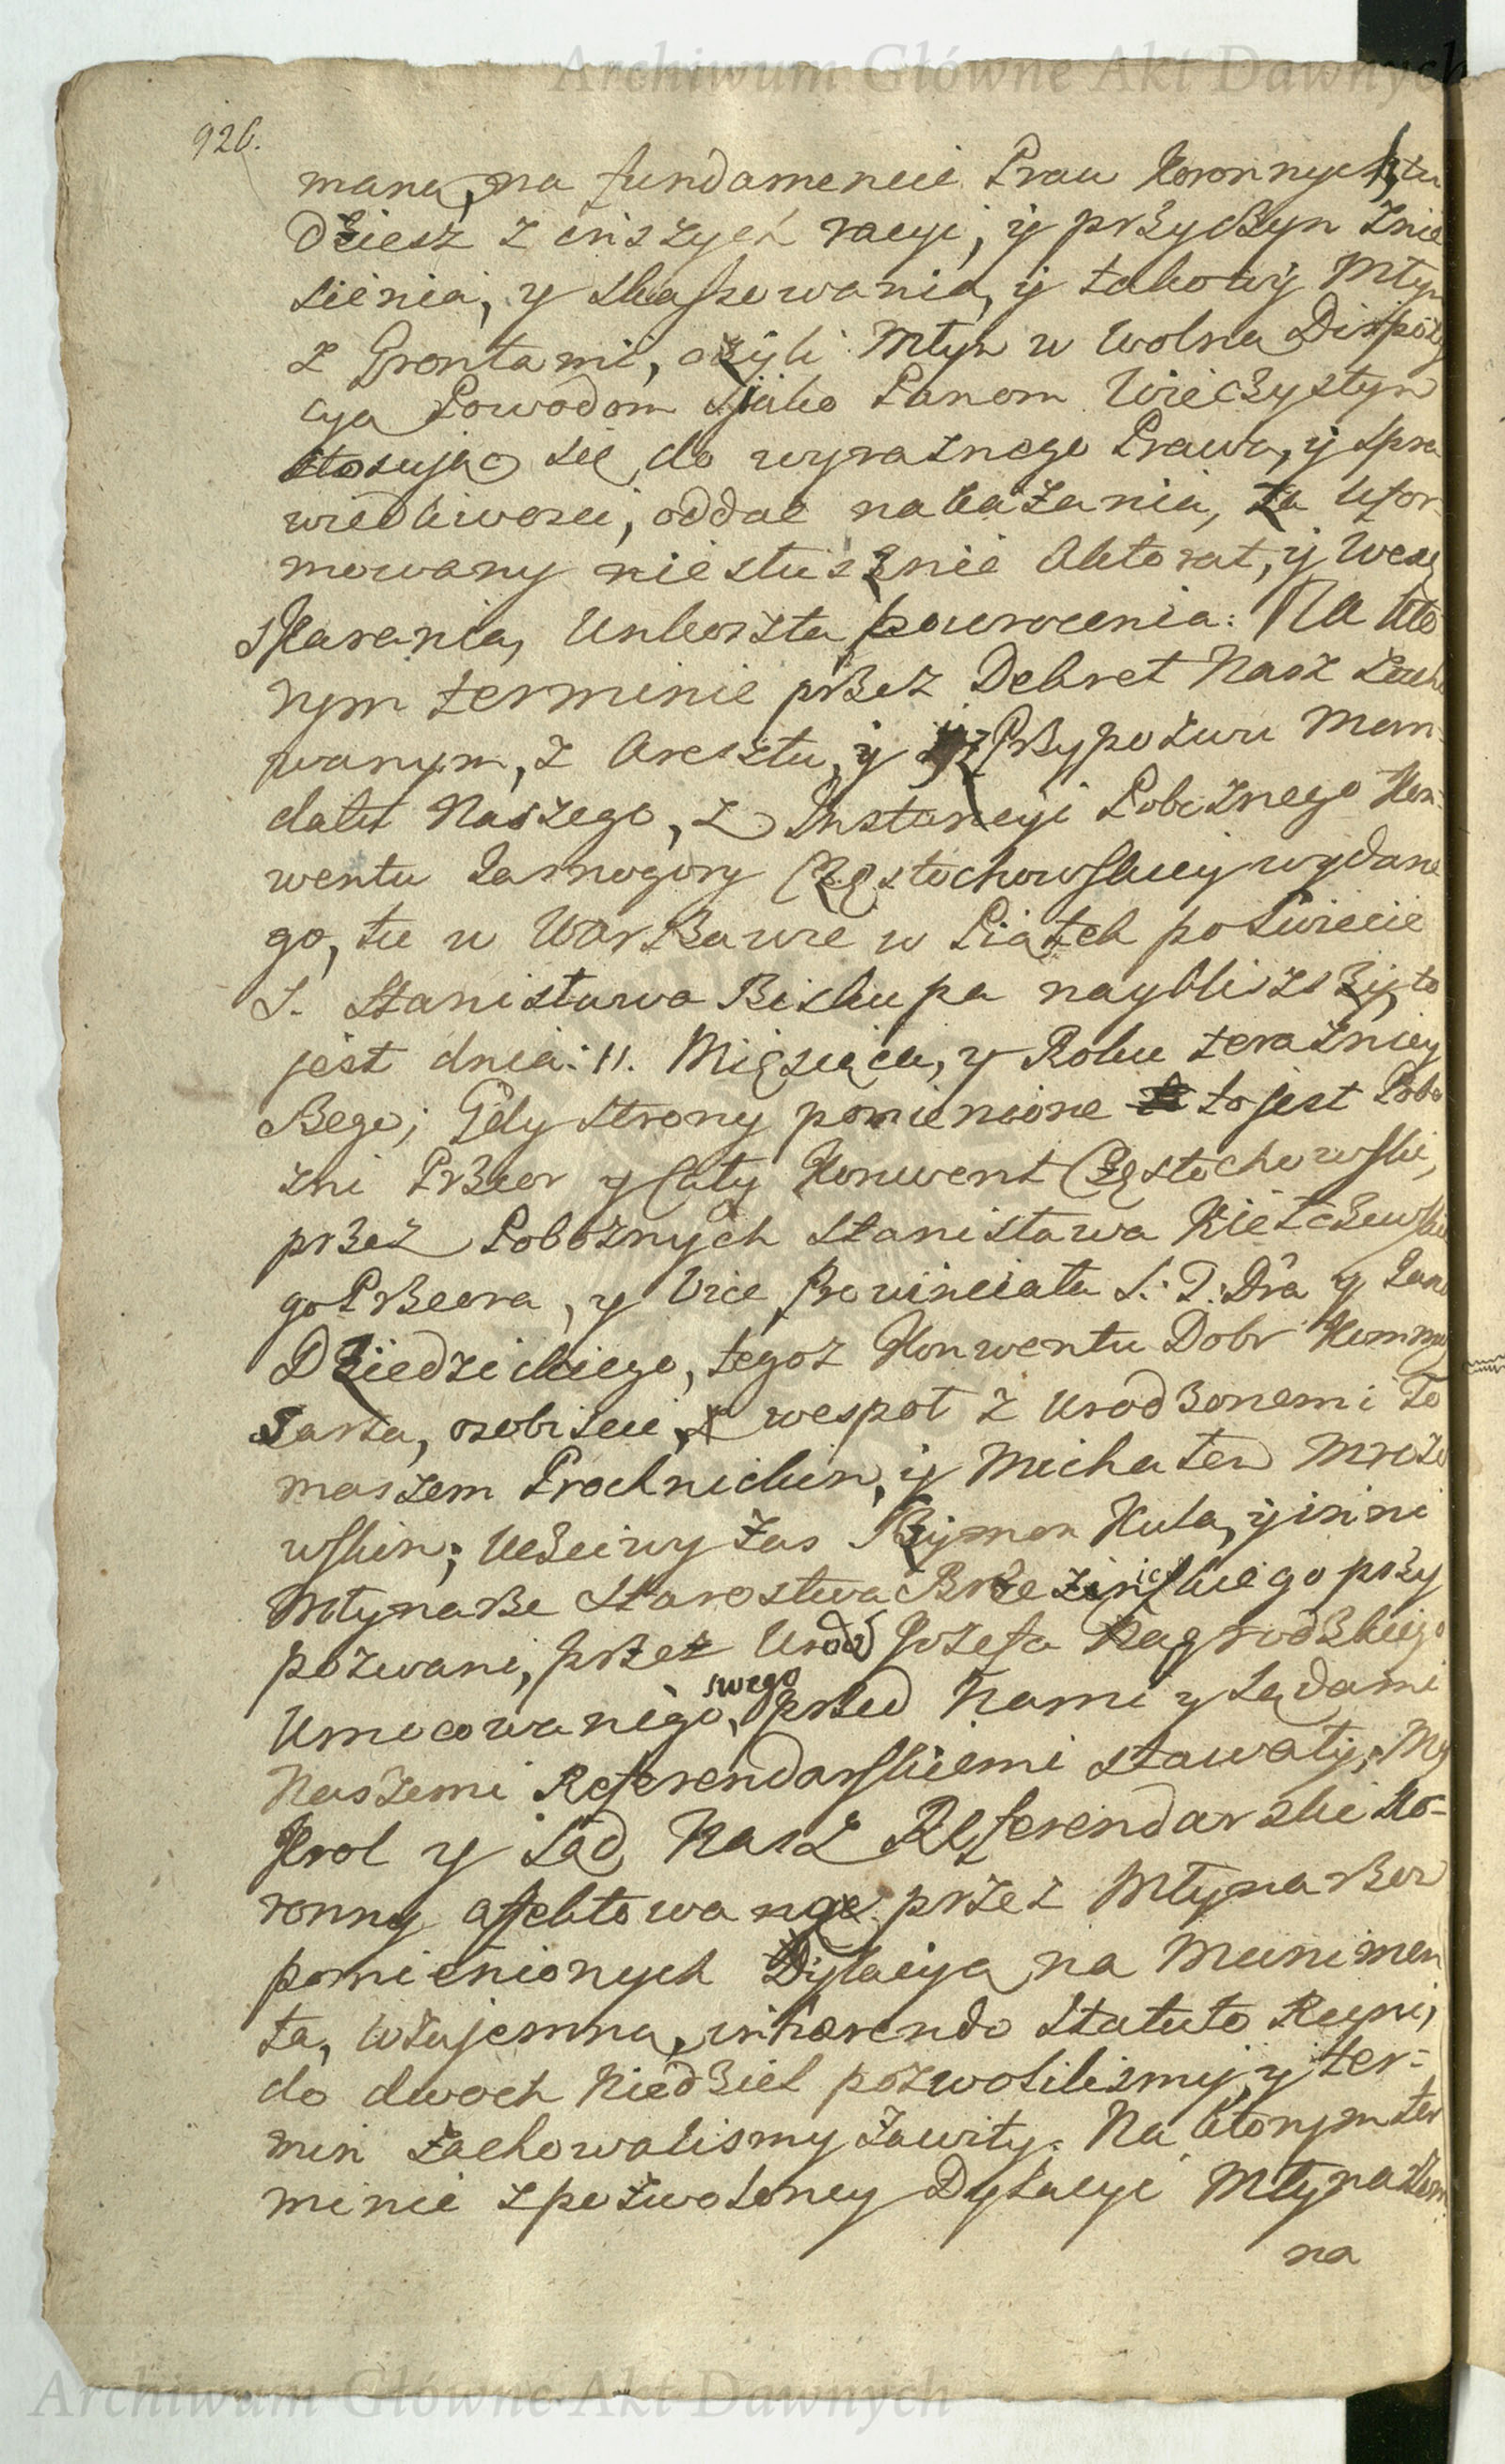 Archiwum Główne Akt Dawnych
926.
maną, na fundamencie Praw Koronnych, tu
dziesz z inszych racyi, y przyczyn znie
sienia, y skassowania, y takowy Młyn
z Grontami, czyli Młyn w wolną Dispozy
cyą Powodom jako Panom Wieczystym
stosując się do wyraznego Prawa, y spra
wiedliwosci, oddać nakazania, za ufor
mowany niesłusznie Aktorat, y Wexę
skarania, Unkoszta powrocenia: Na kto
rym terminie przez Dekret Nasz zacho
wanym, z Aresztu, y z Przypozwu Man-
datu Naszego, z Instancyi Pobożnego Kon-
wentu Jasnogory Częstochowskiey wydane
go, tu w Warszawie w Piątek po Swiecie
S. Stanisława Biskupa naybliższy, to
jest dnia: 11. Miesiąca, y Roku terazniey
szego; Gdy strony pomienione to jest Pobo
zni Przeor y Cały Konwent Częstochowski,
przez Pobożnych Stanisława Kiełczewskie
go Przeora, y Vice Prowinciała S: T: Dra y Jana
Dziedzickiego, tegoz Konwentu Dobr Kommis
sarza, osobiscie, wespoł z Urodzonemi To
maszem Prochnickim, y Michałem Mrozo
wskim; Uczciwy zas Szymon Kula, y inni
Młynarze Starostwa Brzeznickiego przy
pozwani, przez Urodz Jozefa Nagrodzkiego
Umocowanego swego, przed Nami y Sądami
Naszemi Referendarskiemi stawały; My
Krol y Sąd Nasz Referendarski Ko-
ronny affektowaną przez Młynarzow
pomienionych Dylacyą na Munimen
ta, wzajemną, inhaerendo Statuto Regni,
do dwoch Niedziel pozwolilismy, y ter-
min zachowalismy zawity. Na ktorym ter
minie z pozwoloney Dylacyi Młynarzom
na
Archiwum Główne Akt Dawnych